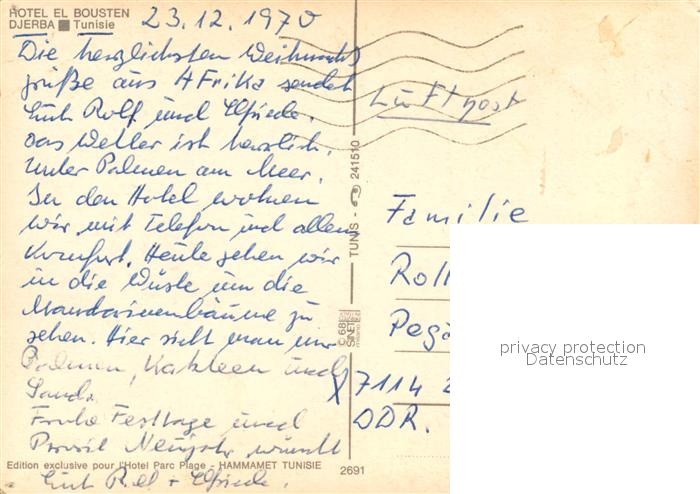 HOTEL EL BOUSTEN
DJERBA ■ Tunisie
23.12.1970
Die herzlichsten Weihnachts
grüße aus Afrika sendet
Euch Rolf und Elfriede.
Das Wetter ist herrlich.
Unter Palmen am Meer.
In den Hotel wohnen
wir mit Telefon und allem
Komfort. Heute gehen wir
in die Wüste um die
Mandarinenbäume zu
sehen. Hier sieht man nur
Palmen, Kakteen und
Sand.
Frohe Festtage und
Prosit Neujahr wünscht
Euch Rolf + Elfriede.
Edition exclusive pour l'Hotel Parc Plage - HAMMAMET TUNISIE
2691
TUNIS - 241510
Luftpost
Familie
Roll
Pegau
7114
DDR.
privacy protection
Datenschutz